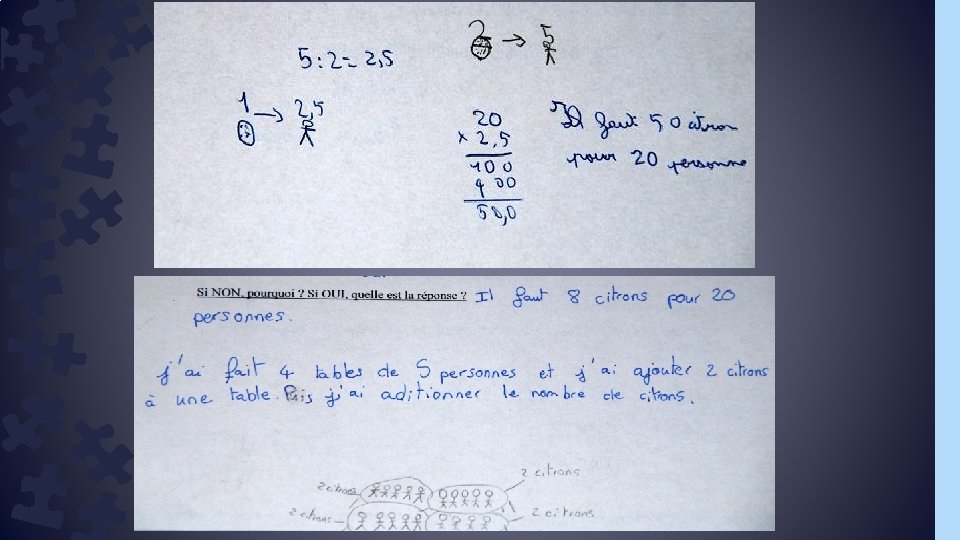 2 → 5
5 : 2 = 2,5
1 → 2,5
20
× 2,5
100
400
50,0
Il faut 50 citron
pour 20 personne
Si NON, pourquoi ? Si OUI, quelle est la réponse ? Il faut 8 citrons pour 20
personnes.
j'ai fait 4 tables de 5 personnes et j'ai ajouter 2 citrons
à une table. Puis j'ai aditionner le nombre de citrons.
2 citrons
2 citrons
2 citrons
2 citrons